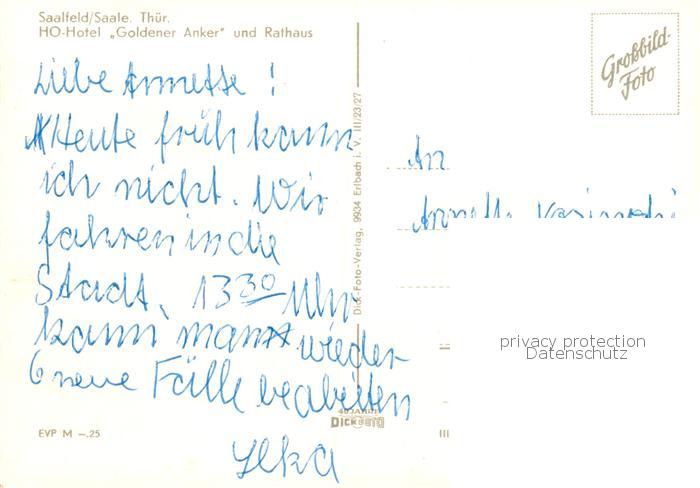 Saalfeld/Saale. Thür.
HO-Hotel „Goldener Anker" und Rathaus
Liebe Annette !
Heute früh kann
ich nicht. Wir
fahren in die
Stadt. 13³⁰ Uhr
kann man wieder
6 neue Fälle beabeiten
Ilka
EVP M –.25
Dick-Foto-Verlag, 9934 Erlbach i. V. III/23/27
40 JAHRE
DICK FOTO
Großbild-
Foto
An
Annette
privacy protection
Datenschutz